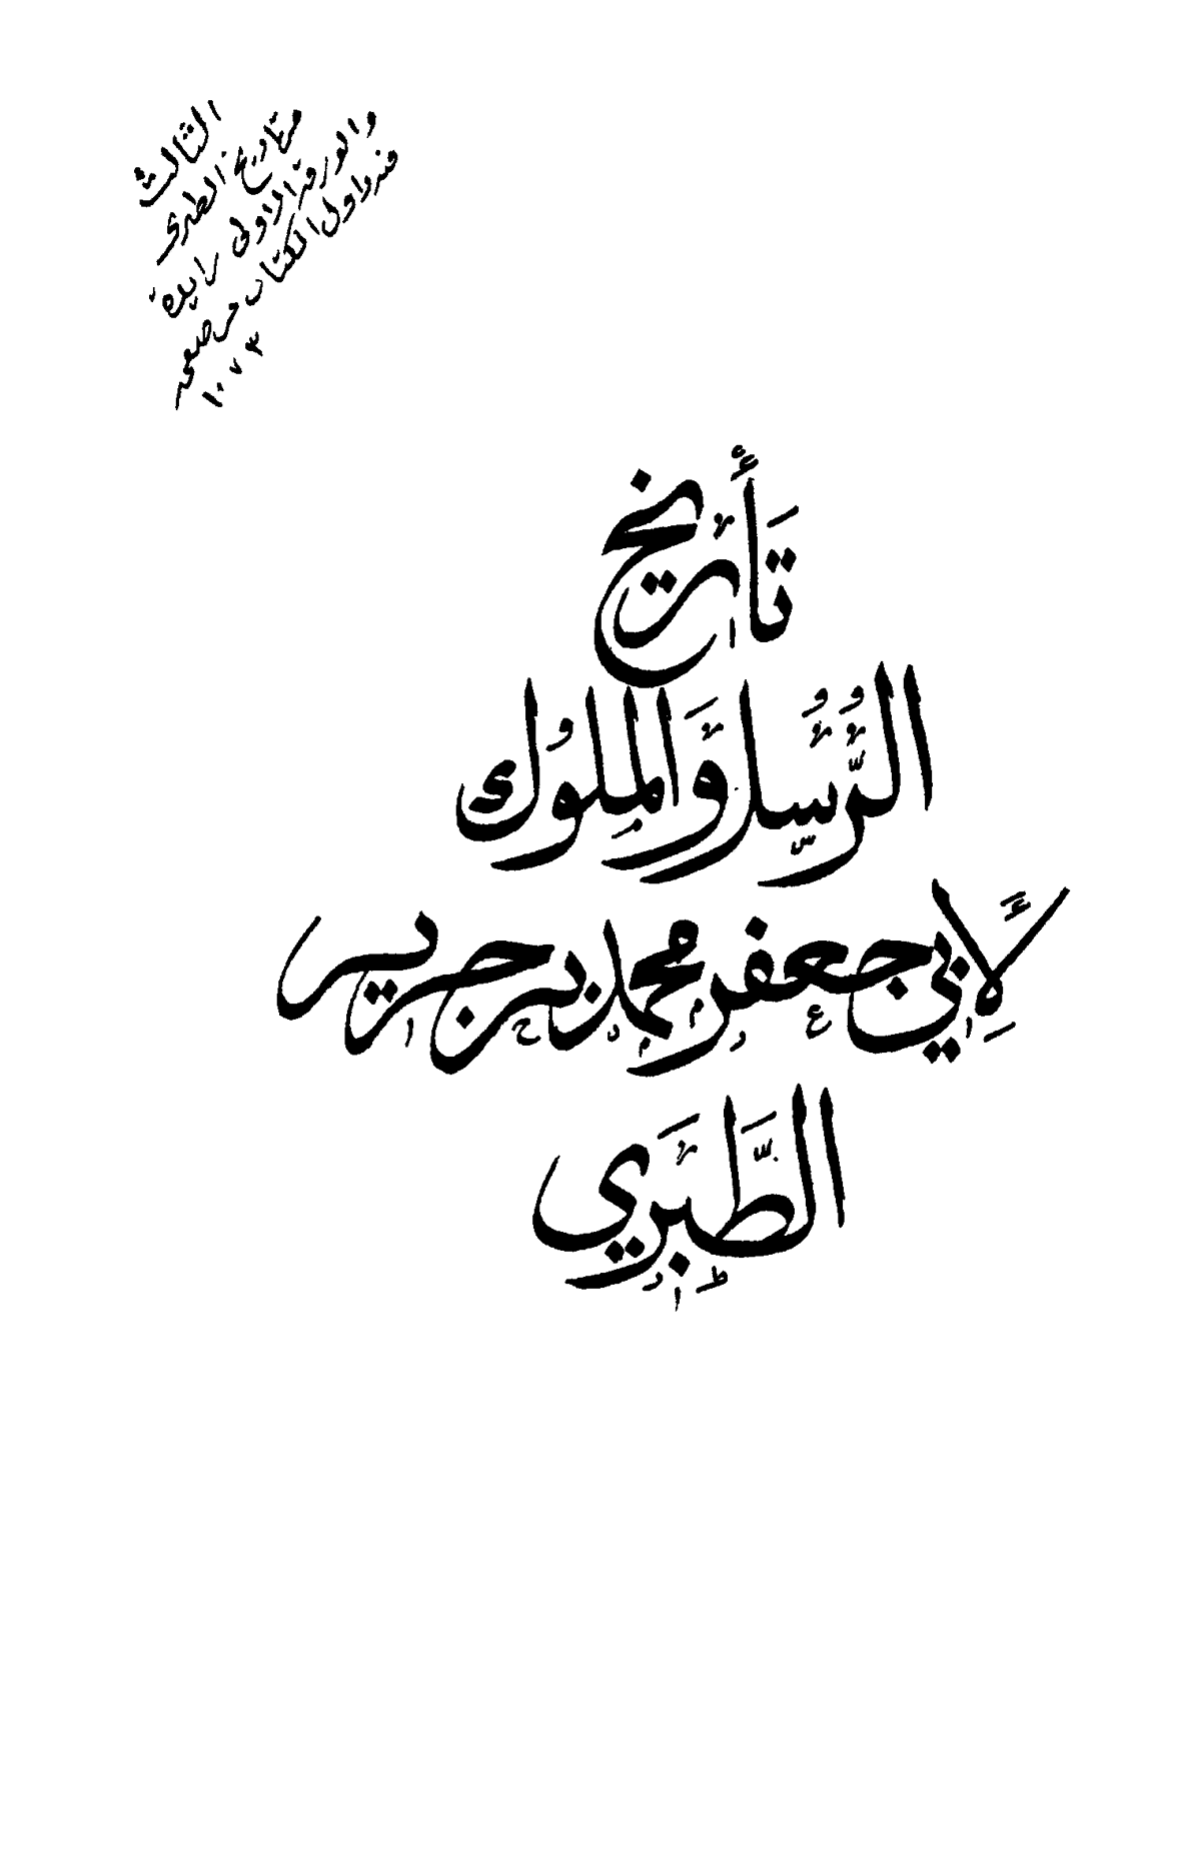 الثالث
من تاريخ الطبرى
والورقة الاولى زايدة
منه واول الكتاب من صفحة
١٠٧٣
تَأْرِيخ
الرُّسُل وَالملُوك
لأَبي جعفر محمد بن جرير
الطَّبَري